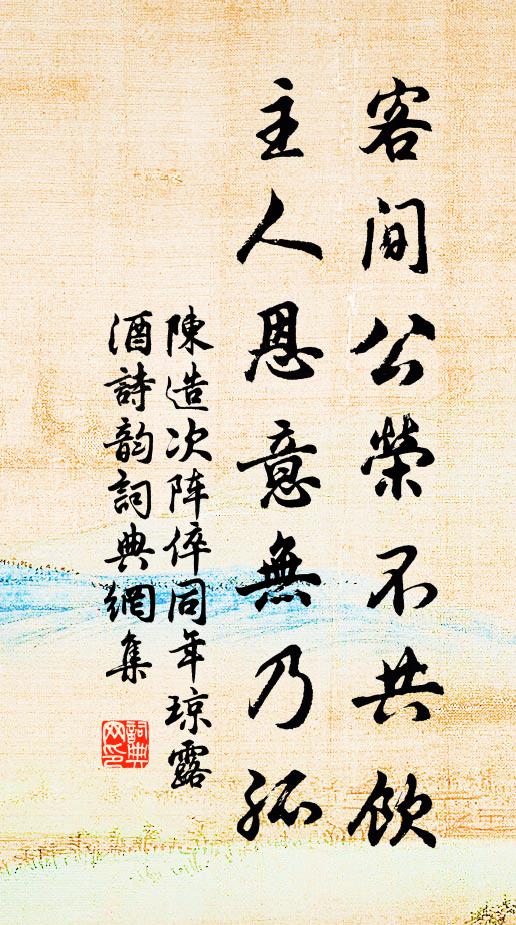 客间公榮不共飲
主人恩意無乃孤
陳造次阵倅同年琼露
酒詩韵詞典網集
詞典网印